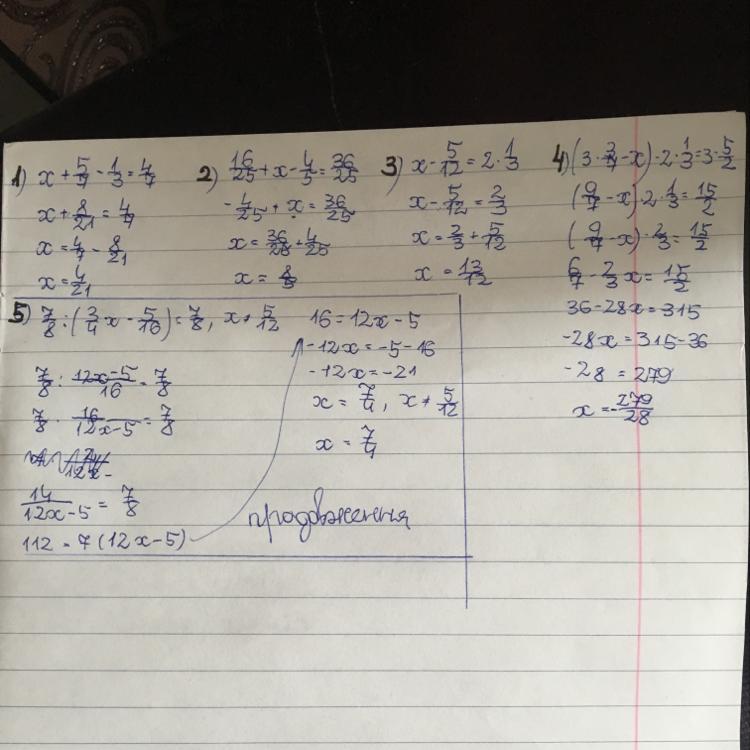 1) x + 5/7 - 1/3 = 4/7
x + 8/21 = 4/7
x = 4/7 - 8/21
x = 4/21
2) 16/25 + x - 4/5 = 36/25
-4/25 + x = 36/25
x = 36/25 + 4/25
x = 8/5
3) x - 5/12 = 2 · 1/3
x - 5/12 = 2/3
x = 2/3 + 5/12
x = 13/12
4) (3 · 3/7 - x) · 2 · 1/3 = 3 · 5/2
(9/7 - x) · 2 · 1/3 = 15/2
(9/7 - x) · 2/3 = 15/2
6/7 - 2/3 x = 15/2
36 - 28x = 315
-28x = 315 - 36
-28 = 279
x = -279/28
5) 7/8 : (3/4 x - 5/16) = 7/8, x ≠ 5/12
7/8 : 12x-5/16 = 7/8
7/8 · 16/12x-5 = 7/8
14/12x-5 = 7/8
112 = 7 (12x-5)
16 = 12x - 5
-12x = -5 - 16
-12x = -21
x = 7/4, x ≠ 5/12
x = 7/4
продовження